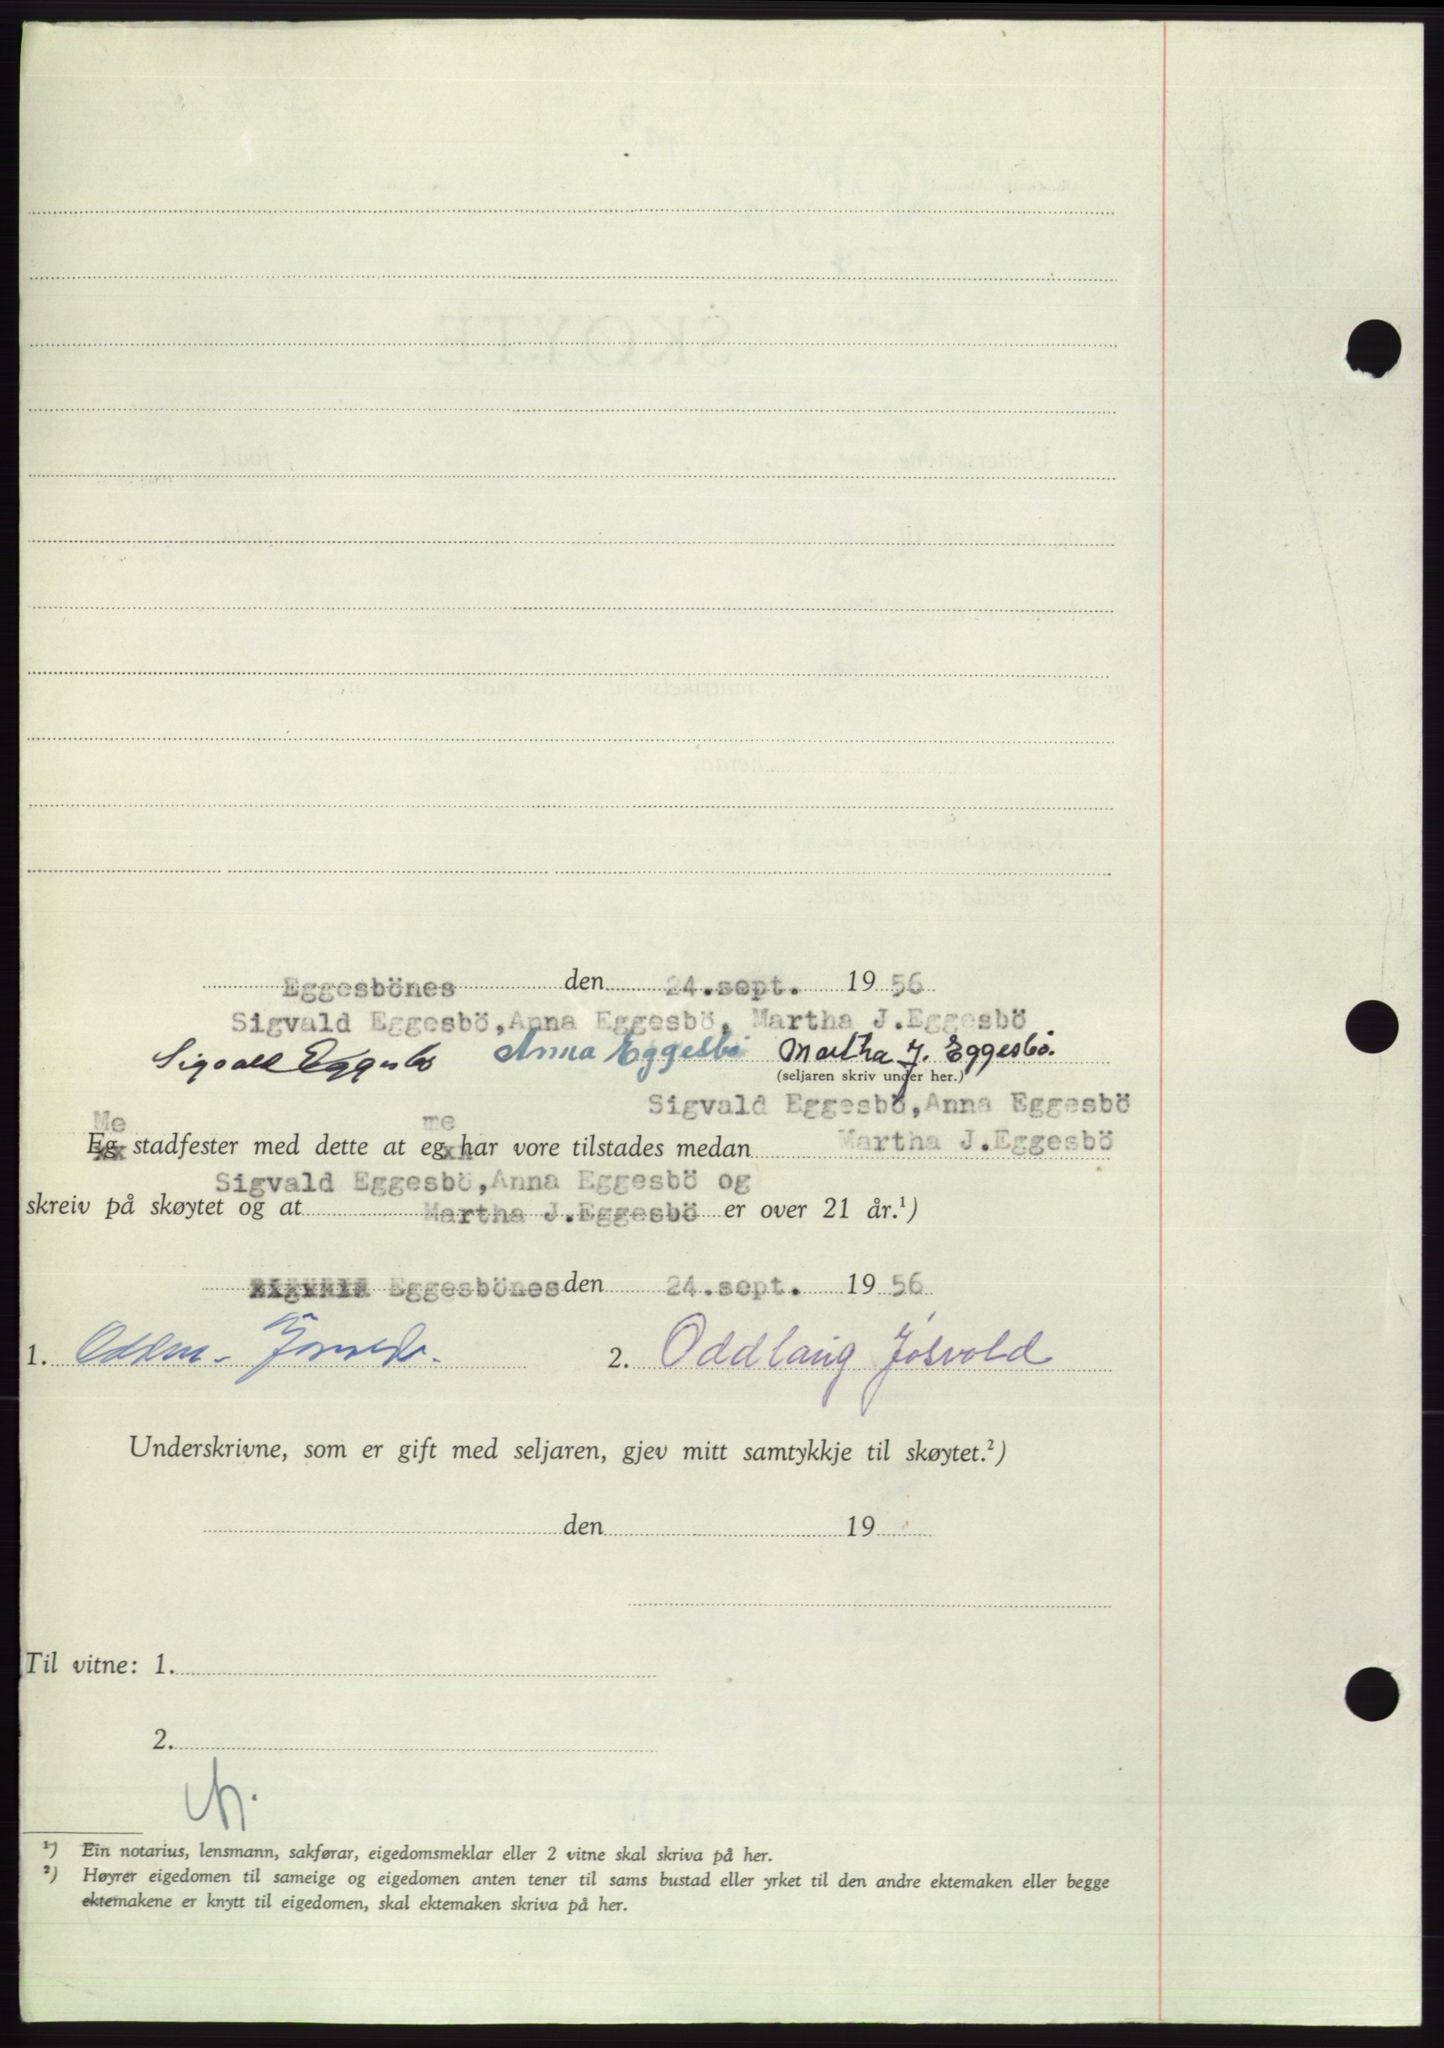 Eggesbönes den 24.sept. 1956
Sigvald Eggesbö,Anna Eggesbö, Martha J.Eggesbö
Sigvald Eggesbö Anna Eggesbö Martha J. Eggesbö.
(seljaren skriv under her.)
Sigvald Eggesbö,Anna Eggesbö
Me me
Eg stadfester med dette at eg har vore tilstades medan Martha J.Eggesbö
Sigvald Eggesbö,Anna Eggesbö og
skreiv på skøytet og at Martha J.Eggesbö er over 21 år.¹)
Sigvald Eggesbönes den 24.sept. 1956
1. 2. Oddlaug Jøsvold
Underskrivne, som er gift med seljaren, gjev mitt samtykkje til skøytet.²)
den 19
Til vitne: 1.
2.
¹) Ein notarius, lensmann, sakførar, eigedomsmeklar eller 2 vitne skal skriva på her.
²) Høyrer eigedomen til sameige og eigedomen anten tener til sams bustad eller yrket til den andre ektemaken eller begge
ektemakene er knytt til eigedomen, skal ektemaken skriva på her.